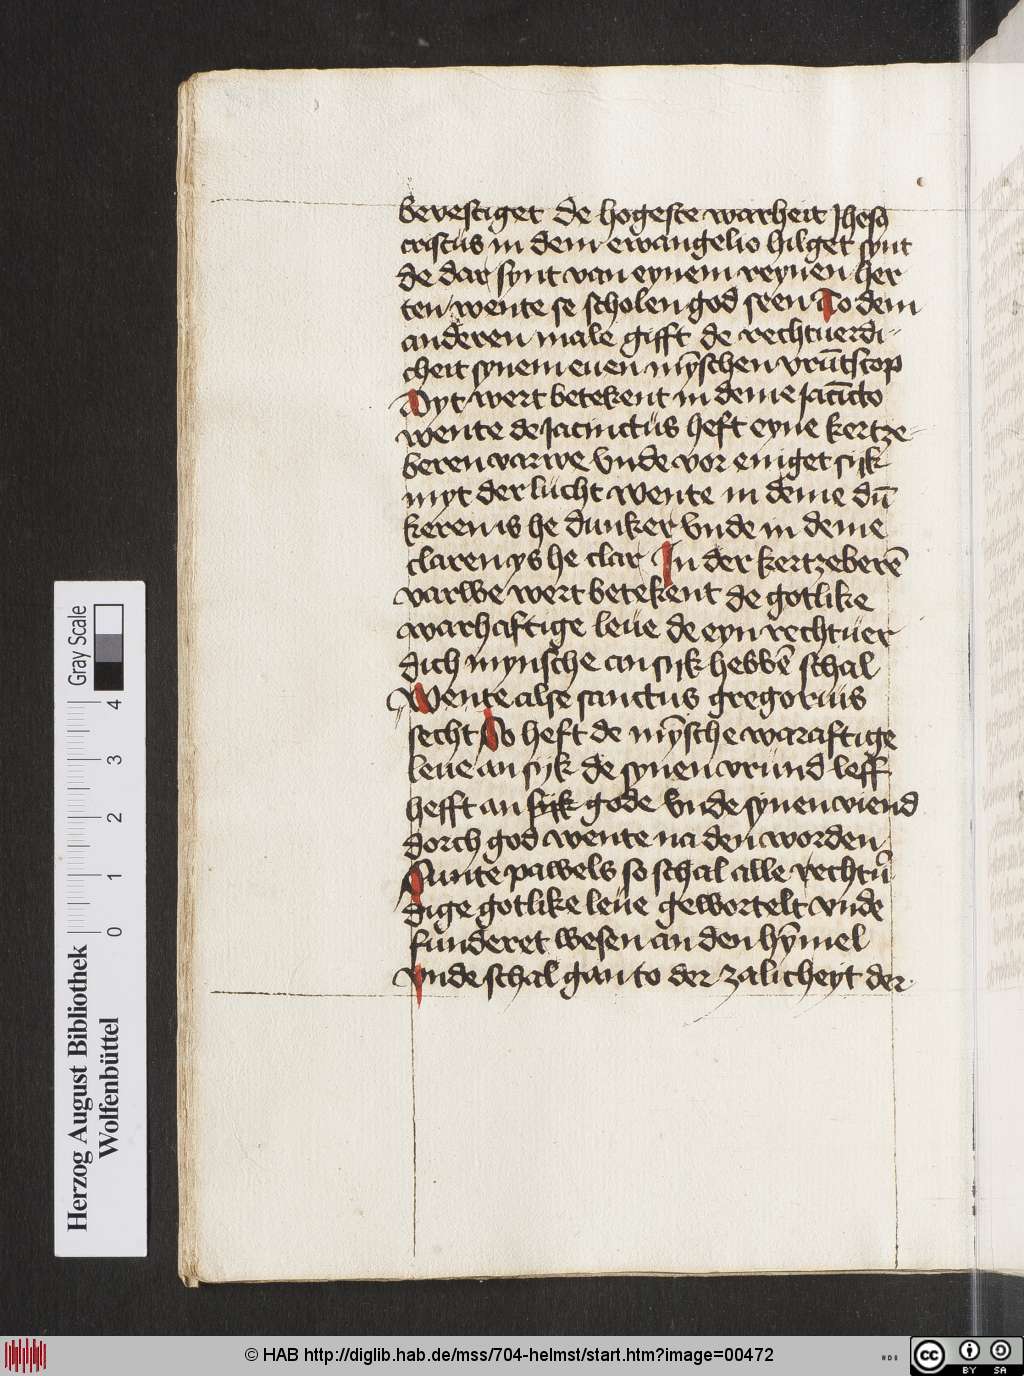 bevestiget de hogeste warheit Jhesꝰ
cristus in dem ewangelio hilget synt
de dar synt van eynem reynen her
ten wente se scholen god seen To dem
anderen male gifft de rechtuerdi-
cheit synem euen mȳschen vrūtscop
Dyt wert betekent in deme Jacīcto
wente de Jacinctus heft eyne kertze-
beren varwe vnde vor eniget sijk
myt der lucht wente in deme dū
keren is he dunker vnde in deme
claren ys he clar In der kertzeberē
varwe wert betekent de gotlike
warhaftige leue de eyn rechtuer
dich mynsche an sijk hebbē schal
Wente alse sanctus gregorius
secht So heft de mȳsche waraftige
leue an sijk de synen vrund leff
hefft an sijk gode vnde synen viend
dorch god wente na den worden
Sunte pawels so schal alle rechtu᷑
dige gotlike leue gewortelt vnde
funderet wesen an den hȳmel
vnde schal gan to der zalicheyt der
Herzog August Bibliothek
Wolfenbüttel
Gray Scale
0 1 2 3 4
© HAB http://diglib.hab.de/mss/704-helmst/start.htm?image=00472
cc BY SA